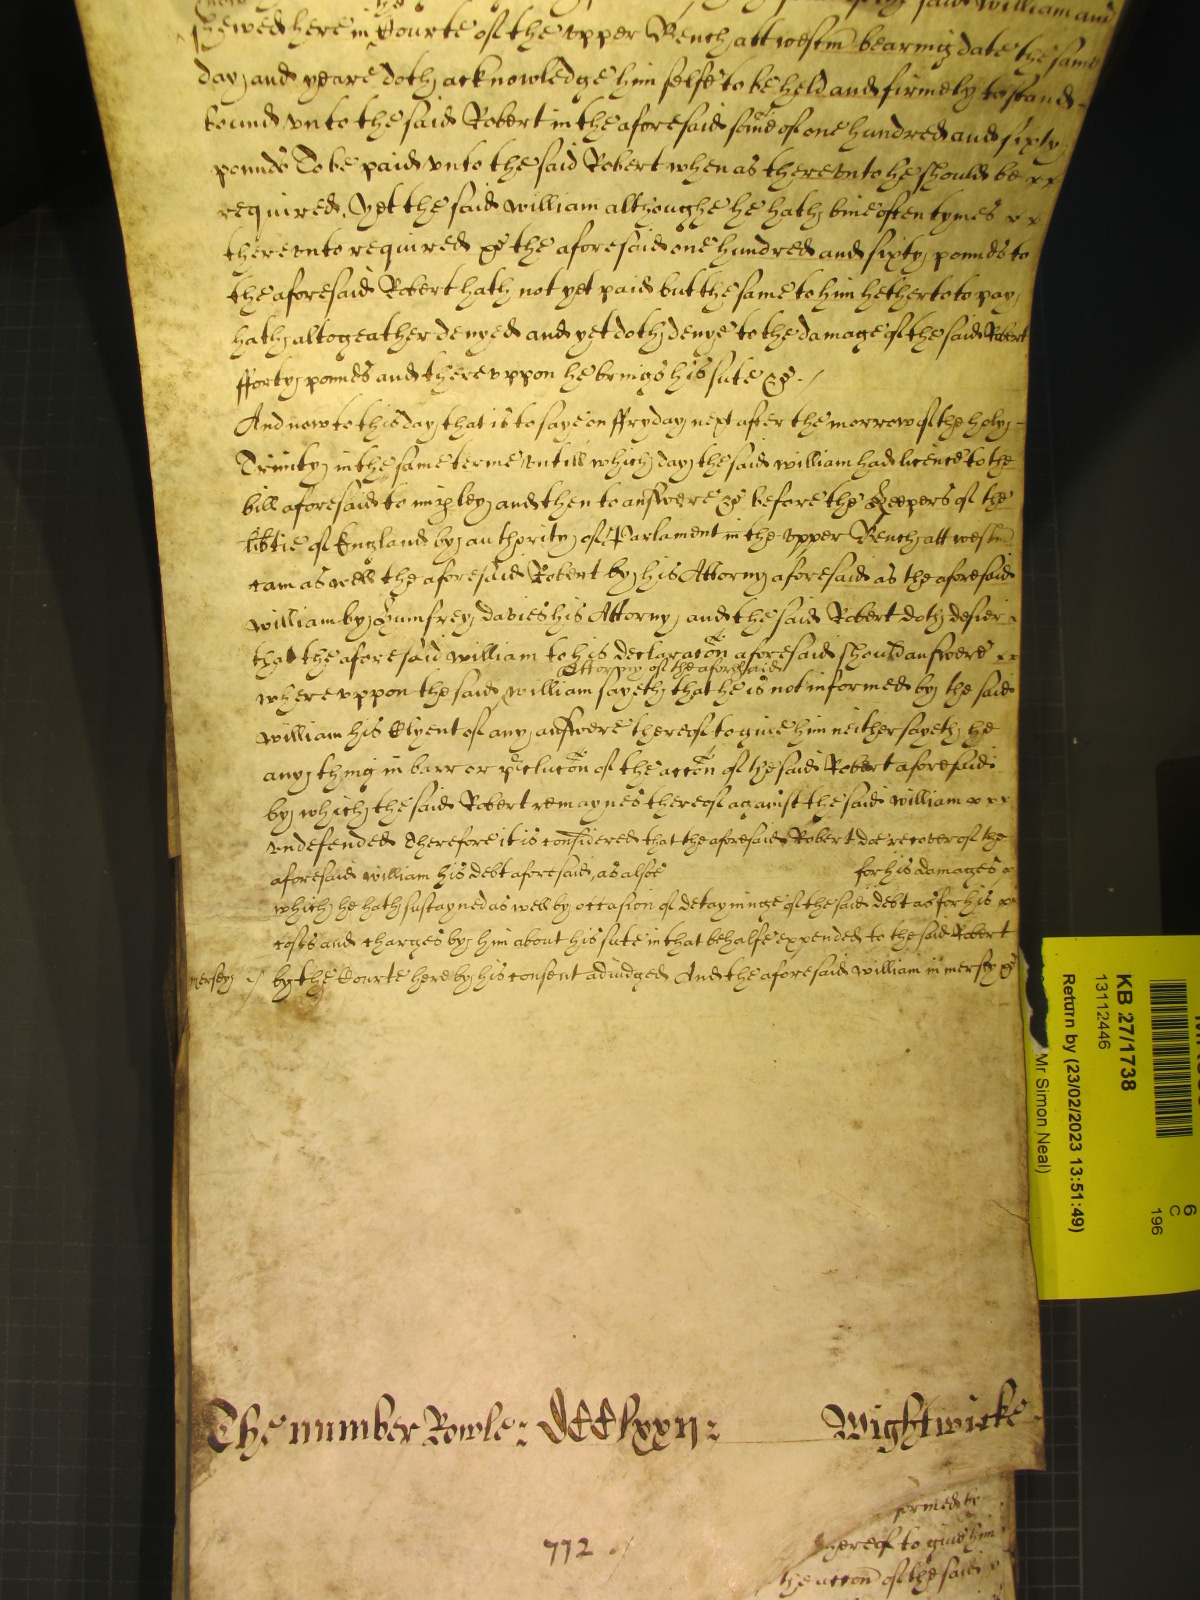 said William and
shewed here in Courte of the vpper Bench att westm bearing date the same
day and yeare doth acknowledge him selfe to be held and firmely to stand
bound vnto the said Robert in the aforesaid some of one hundred and sixty
pounds To be paid vnto the said Robert when as therevnto he should be xx
required, Yet the said William althoughe he hath bine often tymes xx
therevnto required &c the aforesaid one hundred and sixty pounds to
the aforesaid Robert hath not yet paid but the same to him hetherto to pay
hath altogeather denyed and yet doth denye to the damage of the said Robert
fforty pounds and therevppon he brings his sute &c./
And now to this day that is to saye on ffryday next after the morrow of the holy
Trinity in the same terme vntill which day the said William had licence to the
bill aforesaid to imparley and then to answere &c before the Keepers of the
libtie of England by authority of Parlament in the vpper Bench att westm
cam as well the aforesaid Robert by his Attorny aforesaid as the aforesaid
William by Humfrey Davies his Attorny and the said Robert doth desier
that the aforesaid William to his declaracon aforesaid should answere xx
Attorny of the aforesaid
wherevppon the said William sayeth that he is not informed by the said
William his Clyent of any answere thereof to give him neither sayeth he
any thing in barr or preclucon of the accon of the said Robert aforesaid
by which the said Robert remaynes thereof against the said William xxx
vndefended Therefore it is considered that the aforesaid Robert doe recover of the
aforesaid William his debt aforesaid, as alsoe for his damages x
which he hath sustayned as well by occasion of detayninge of the said debt as for his xx
costs and charges by him about his sute in that behalfe expended to the said Robert
mersey ./ by the Courte here by his consent adiudged And the aforesaid William in mersey &c
The number Rowle: DCClxxii: Wightwicke
772
formed by
thereof to give him
the accon of the said
KB 27/1738
13112446
Return by (23/02/2023 13:51:49)
Mr Simon Neal)
6
C
196